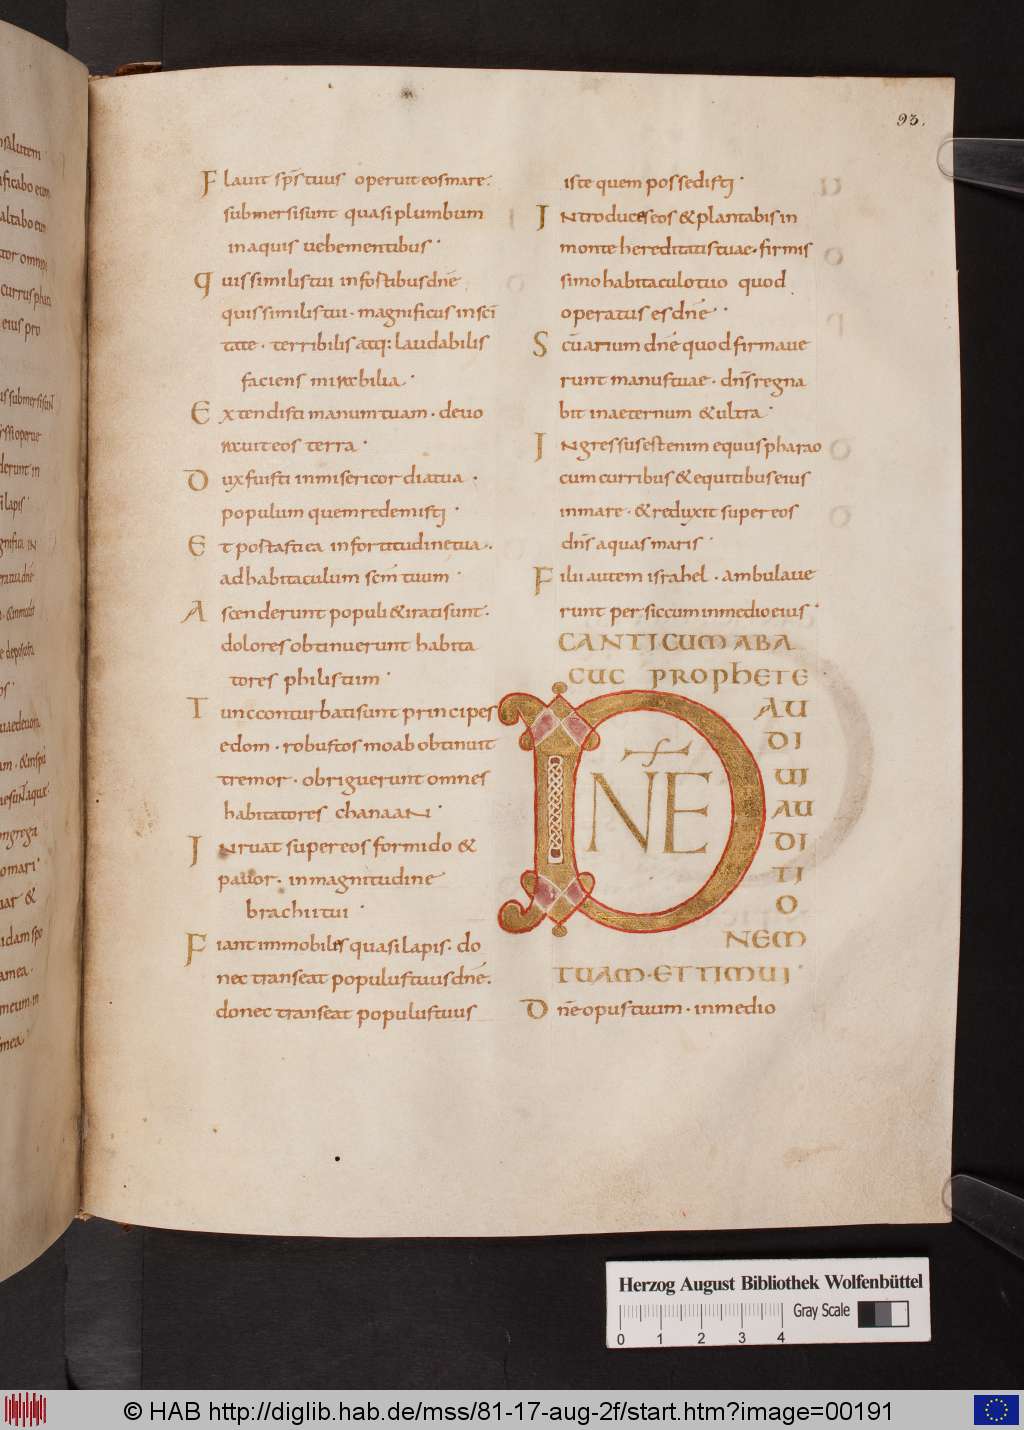 93.
Flauit sp̄s tuus operuit eos mare.
submersi sunt quasi plumbum
in aquis uehementibus.
Quis similis tui in fortibus dn̄e
quis similis tui. magnificus in sc̄i
tate. terribilis atq: laudabilis
faciens mirabilia.
Extendisti manum tuam. deuo
rauit eos terra.
Dux fuisti in misericordia tua.
populum quem redemisti.
Et portasti ea in fortitudine tua.
ad habitaculum sc̄m tuum.
Ascenderunt populi & irati sunt.
dolores obtinuerunt habita
tores philistim.
Tunc conturbati sunt principes
edom. robustos moab obtinuit
tremor. obriguerunt omnes
habitatores chanaan.
Inruat super eos formido &
pauor. in magnitudine
brachii tui.
Fiant immobiles quasi lapis. do
nec transeat populus tuus dn̄e.
donec transeat populus tuus
iste quem possedisti.
Introduces eos & plantabis in
monte hereditatis tuae. firmis
simo habitaculo tuo quod
operatus es dn̄e.
Sc̄uarium dn̄e quod firmaue
runt manus tuae. dn̄s regna
bit in aeternum & ultra.
Ingressus est enim equus pharao
cum curribus & equitibus eius
in mare. & reduxit super eos
dn̄s aquas maris.
Filii autem israhel. ambulaue
runt per siccum in medio eius.
CANTICUM ABA
CUC PROPHETE.
DN̄E
AU
DI
UI
AU
DI
TI
O
NEM
TUAM. ET TIMUI.
Dn̄e opus tuum. in medio
Herzog August Bibliothek Wolfenbüttel
0 1 2 3 4 Gray Scale
© HAB http://diglib.hab.de/mss/81-17-aug-2f/start.htm?image=00191